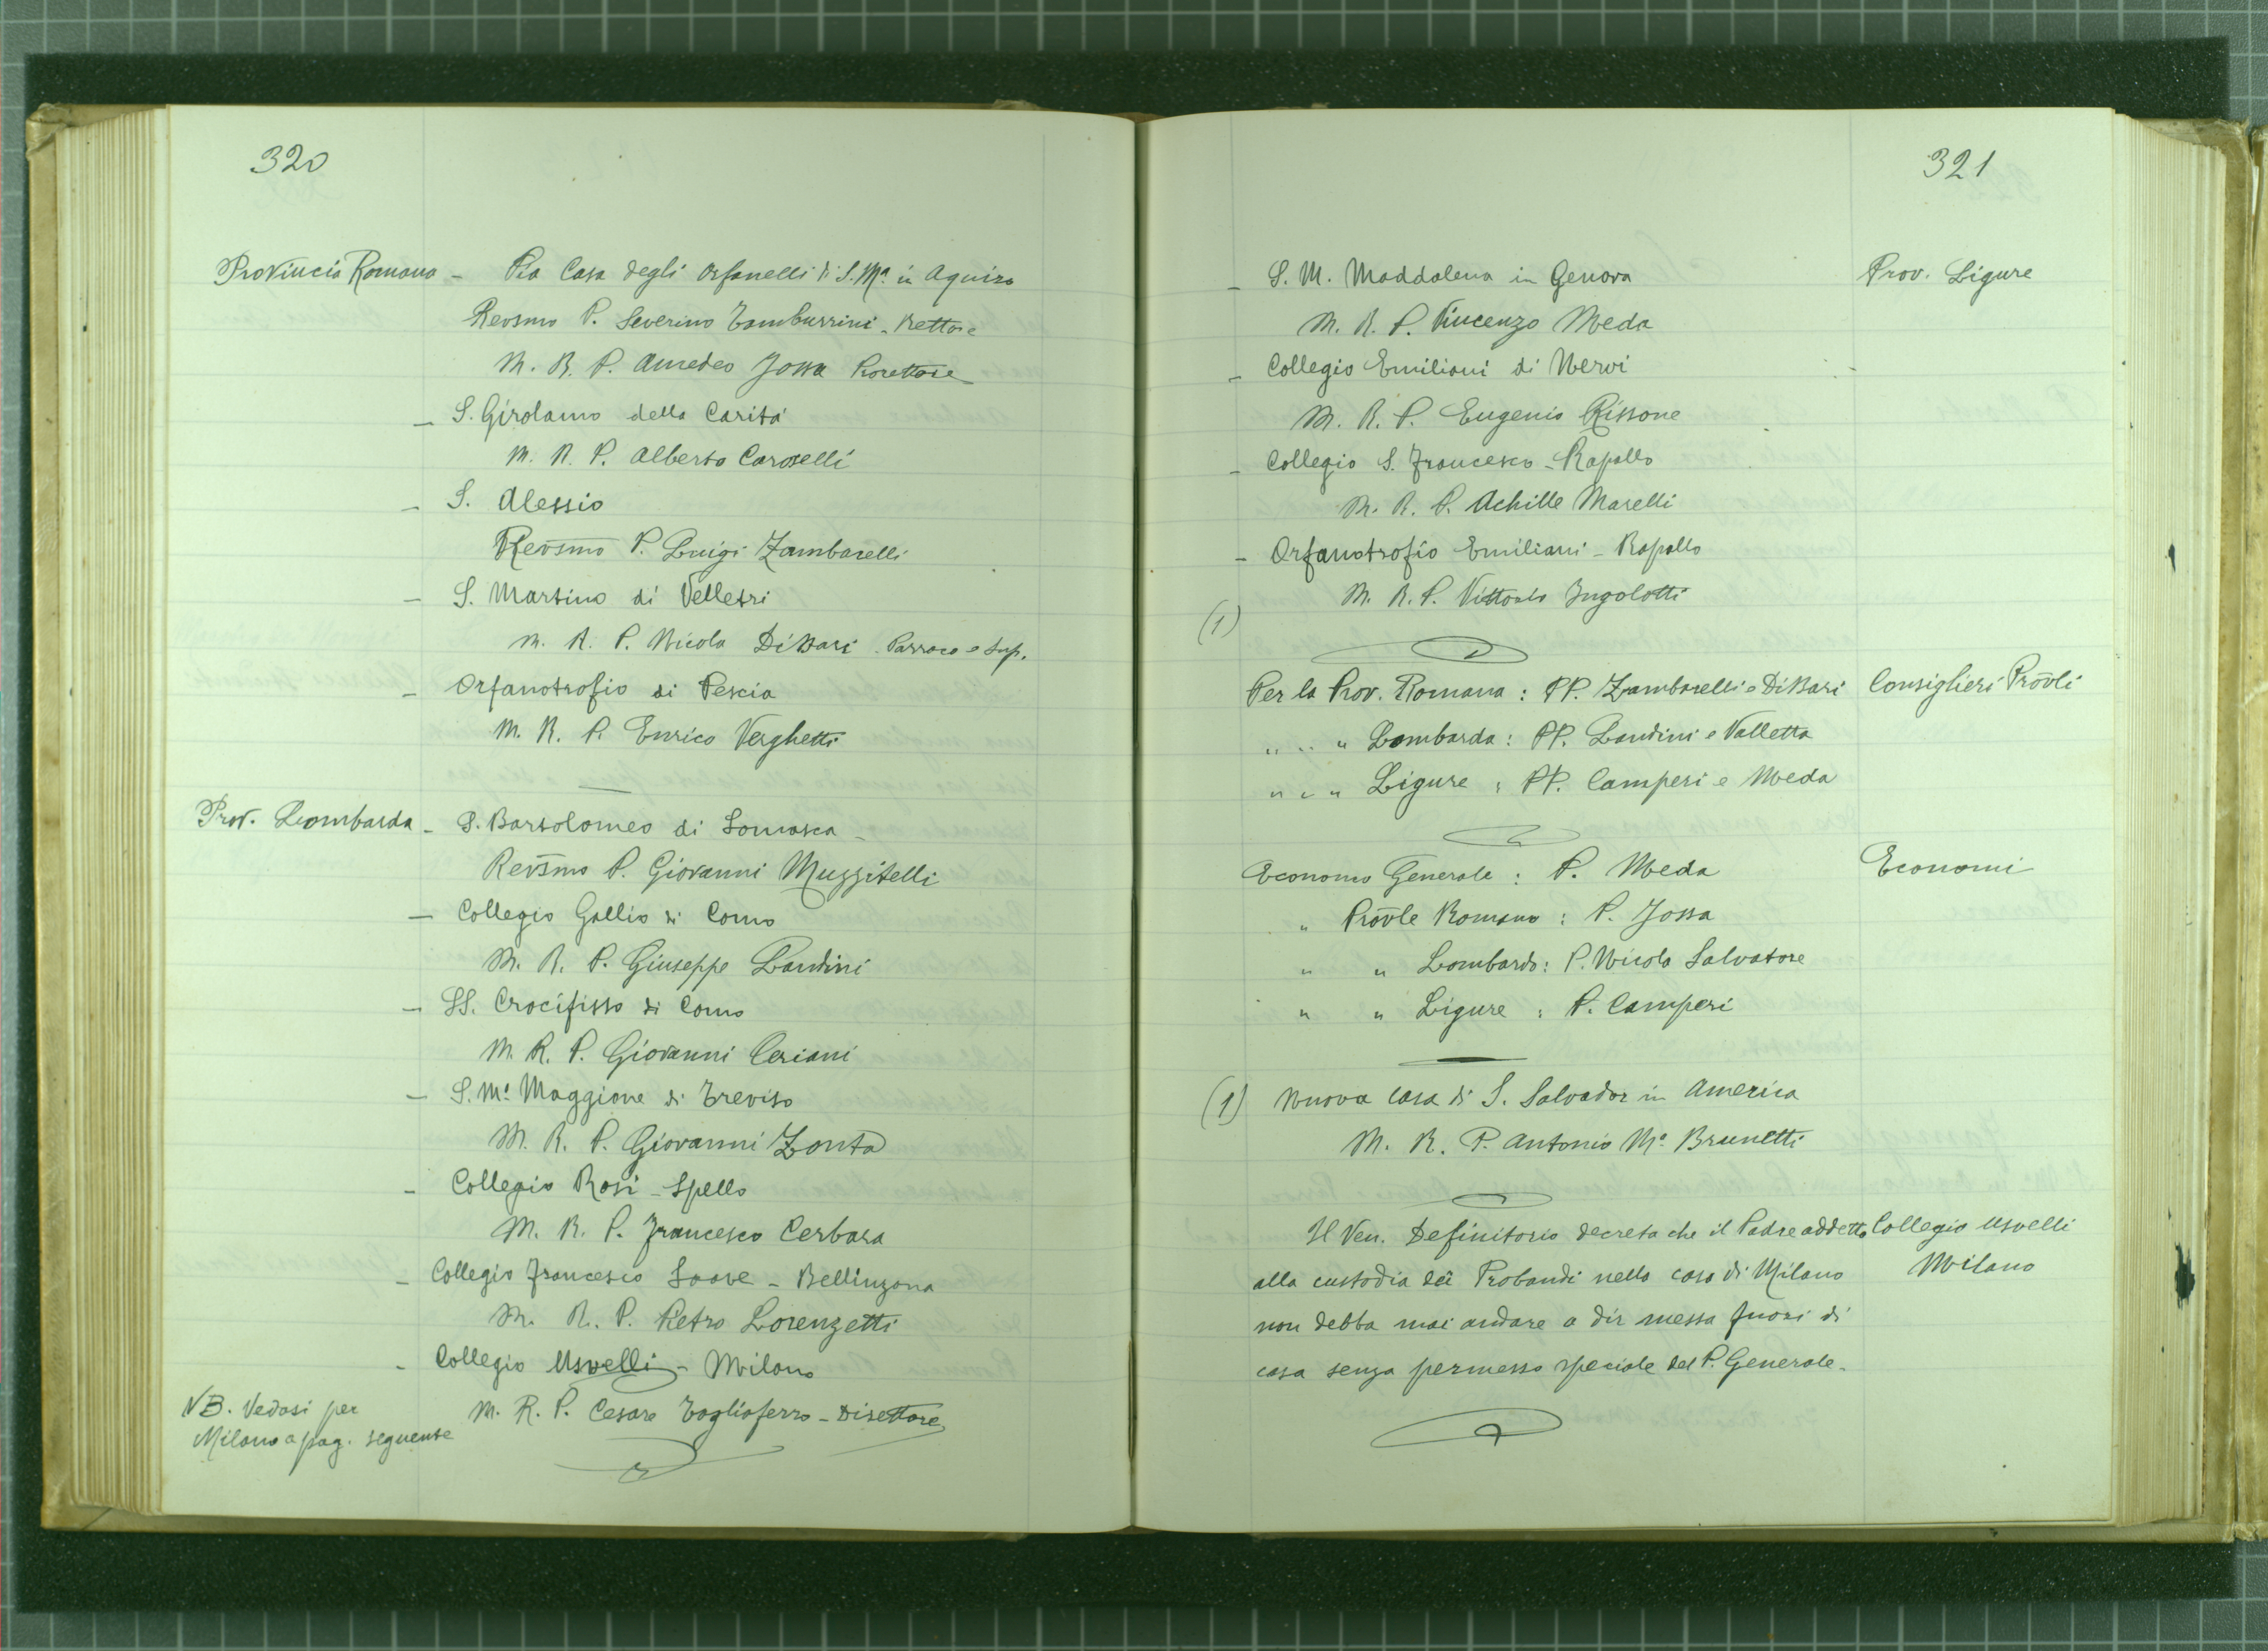 320
Provincia Romana - Pia Casa degli Orfanelli di S. Mª in Aquiro
Revsmo P. Severino Tamburrini - Rettore
M. R. P. Amedeo Jossa Prorettore
- S. Girolamo della Carità
M. R. P. Alberto Caroselli
- S. Alessio
Revsmo P. Luigi Zambarelli
- S. Martino di Velletri
M. R. P. Nicola Di Bari - Parroco e Sup.
- Orfanotrofio di Pescia
M. R. P. Enrico Verghetti
Prov. Lombarda - S. Bartolomeo di Somasca -
Revsmo P. Giovanni Muzzitelli
- Collegio Gallio di Como
M. R. P. Giuseppe Landini
- SS. Crocifisso di Como
M. R. P. Giovanni Ceriani
- S. Mª Maggiore di Treviso
M. R. P. Giovanni Zonta
- Collegio Rosi - Spello
M. R. P. Francesco Cerbara
- Collegio Francesco Soave - Bellinzona
M. R. P. Pietro Lorenzetti
- Collegio Usuelli - Milano
M. R. P. Cesare Tagliaferro - Direttore
NB. Vedasi per
Milano a pag. seguente
321
- S. M. Maddalena in Genova Prov. Ligure
M. R. P. Vincenzo Meda
- Collegio Emiliani di Nervi
M. R. P. Eugenio Rissone
- Collegio S. Francesco - Rapallo
M. R. P. Achille Marelli
- Orfanotrofio Emiliani - Rapallo
M. R. P. Vittorio Ingolotti
(1)
Per la Prov. Romana : PP. Zambarelli e Di Bari Consiglieri Prov̄li
" " " Lombarda : PP. Landini e Valletta
" " " Ligure : PP. Camperi e Meda
Economo Generale : P. Meda Economi
" Prov̄le Romano : P. Jossa
" " Lombardo : P. Nicola Salvatore
" " Ligure : P. Camperi
(1) Nuova casa di S. Salvador in America
M. R. P. Antonio Mª Brunetti
Il Ven. Definitorio decreta che il Padre addetto Collegio Usuelli
alla custodia dei Probandi nella casa di Milano Milano
non debba mai andare a dir messa fuori di
casa senza permesso speciale del P. Generale.